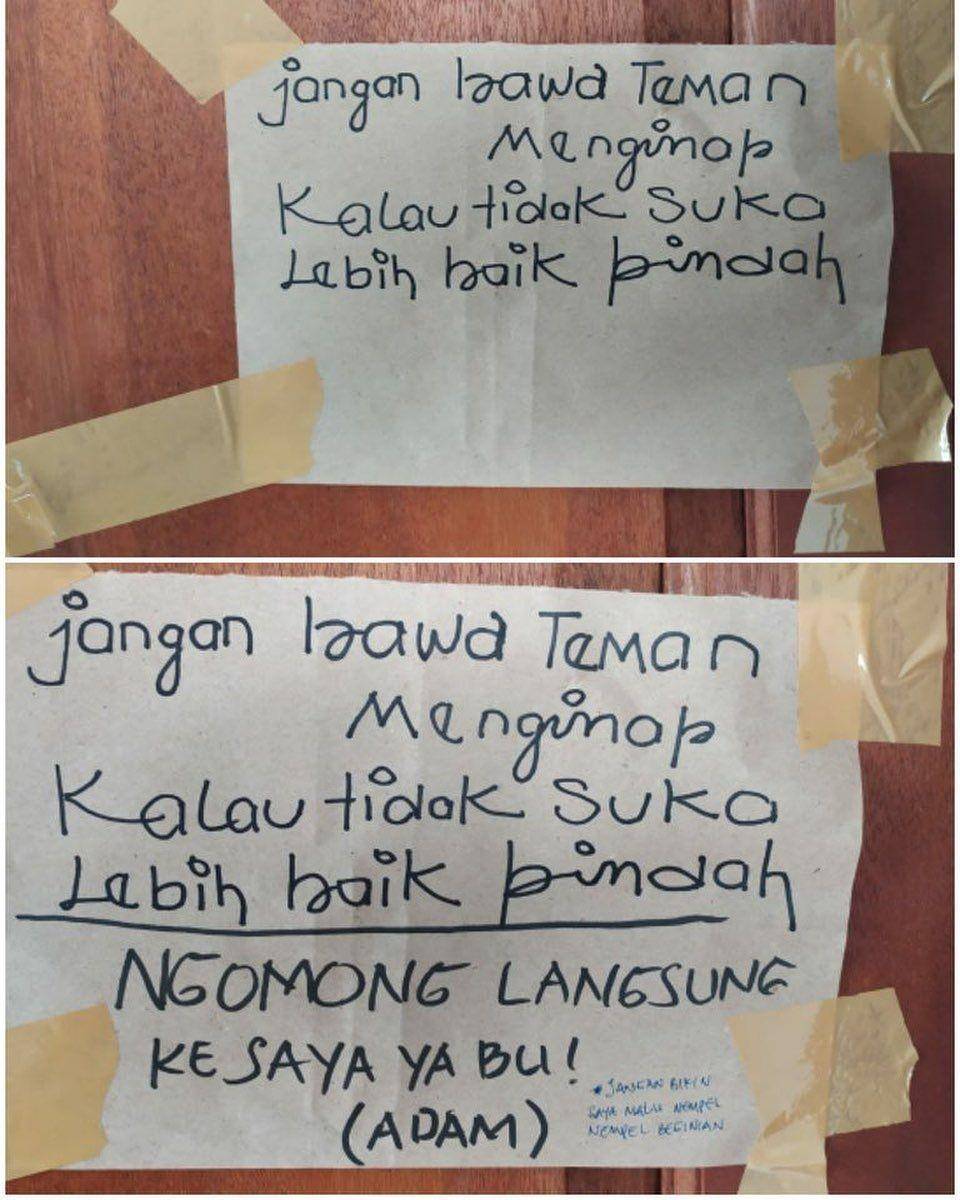 jangan bawa Teman
Menginap
Kalau tidak Suka
Lebih baik pindah
jangan bawa Teman
Menginap
Kalau tidak Suka
Lebih baik pindah
NGOMONG LANGSUNG
KE SAYA YA BU!
(ADAM)
* JANGAN BIKIN
SAYA MALU NEMPEL
NEMPEL BEGINIAN